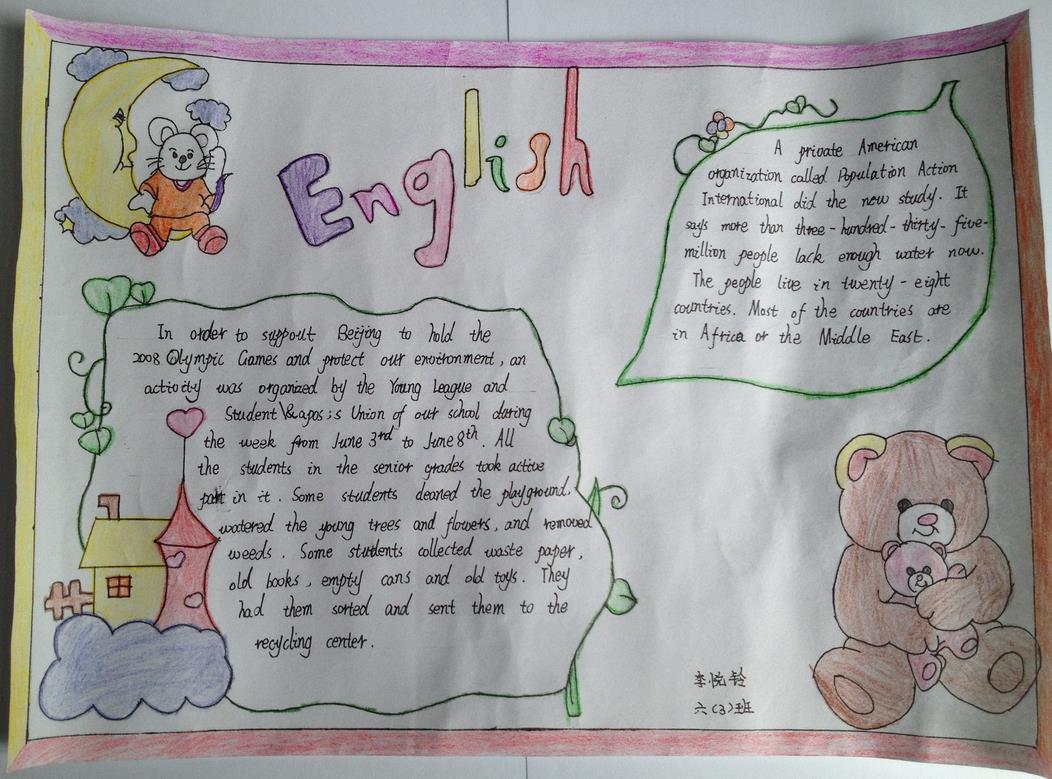 English
In order to suppout Beijing to hold the
2008 Olympic Games and protect our environment, an
activity was organized by the Young League and
Student \&apos;s Union of our school during
the week from June 3rd to June 8th. All
the students in the senior grades took active
part in it. Some students cleaned the playground,
watered the young trees and flowers, and removed
weeds. Some students collected waste paper,
old books, empty cans and old toys. They
had them sorted and sent them to the
recycling center.
A private American
organization called Population Action
International did the now study. It
says more than three-hundred-thirty-five-
million people lack enough water now.
The people live in twenty-eight
countries. Most of the countries are
in Africa or the Middle East.
李悦铃
六(3)班